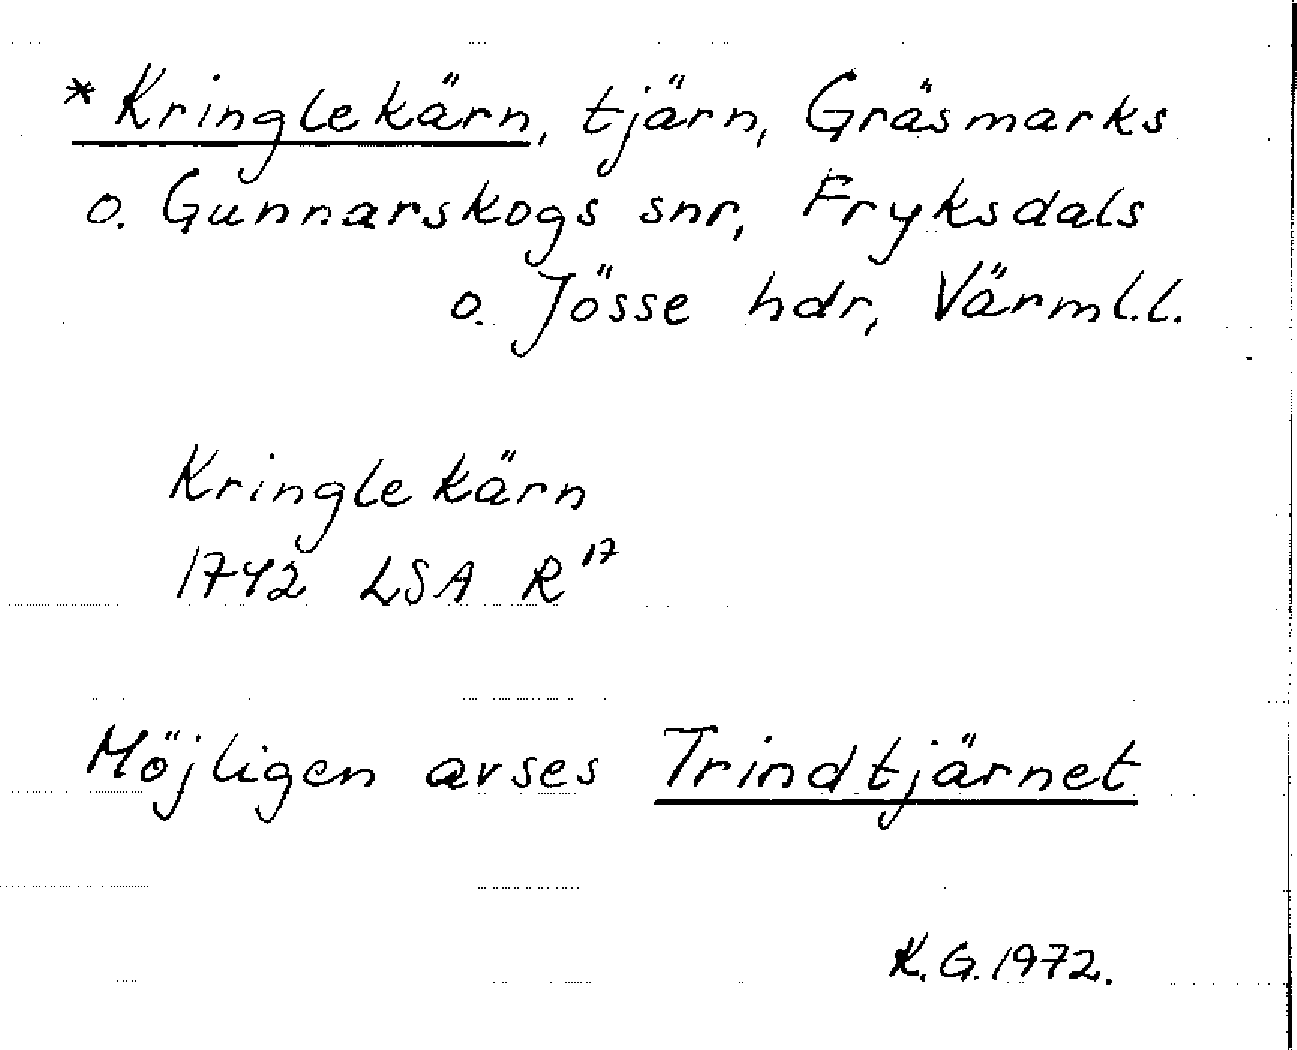 * Kringlekärn, tjärn, Gräsmarks
o. Gunnarskogs snr, Fryksdals
o. Jösse hdr, Värml.l.
Kringlekärn
1742 LSA R17
Möjligen avses Trindtjärnet
K.G. 1972.